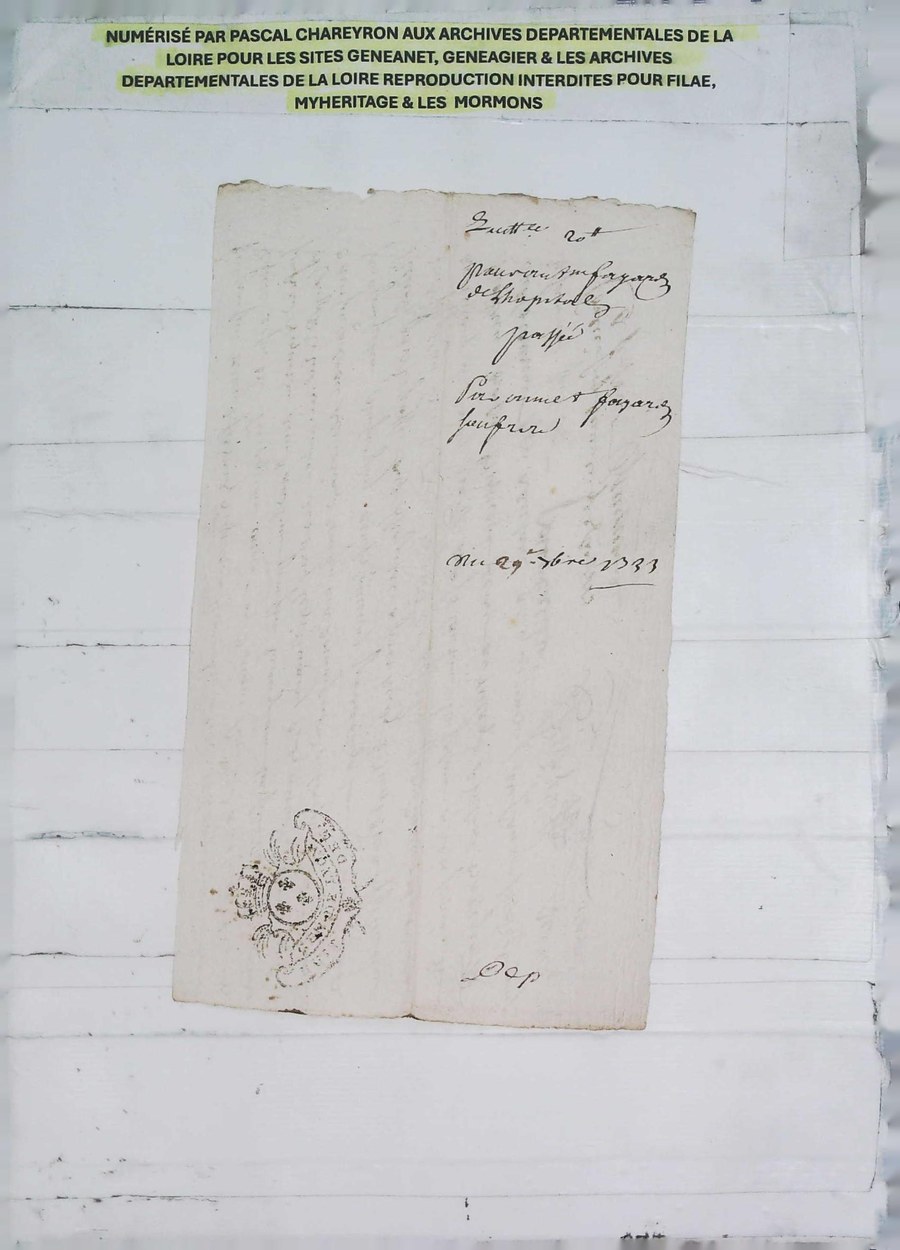 NUMÉRISÉ PAR PASCAL CHAREYRON AUX ARCHIVES DEPARTEMENTALES DE LA
LOIRE POUR LES SITES GENEANET, GENEAGIER & LES ARCHIVES
DEPARTEMENTALES DE LA LOIRE REPRODUCTION INTERDITES POUR FILAE,
MYHERITAGE & LES MORMONS
Quittce 20tt
fayard
de Lhopital
passée
Par fayard
son frere
Du 29e 7bre 1733
Dep